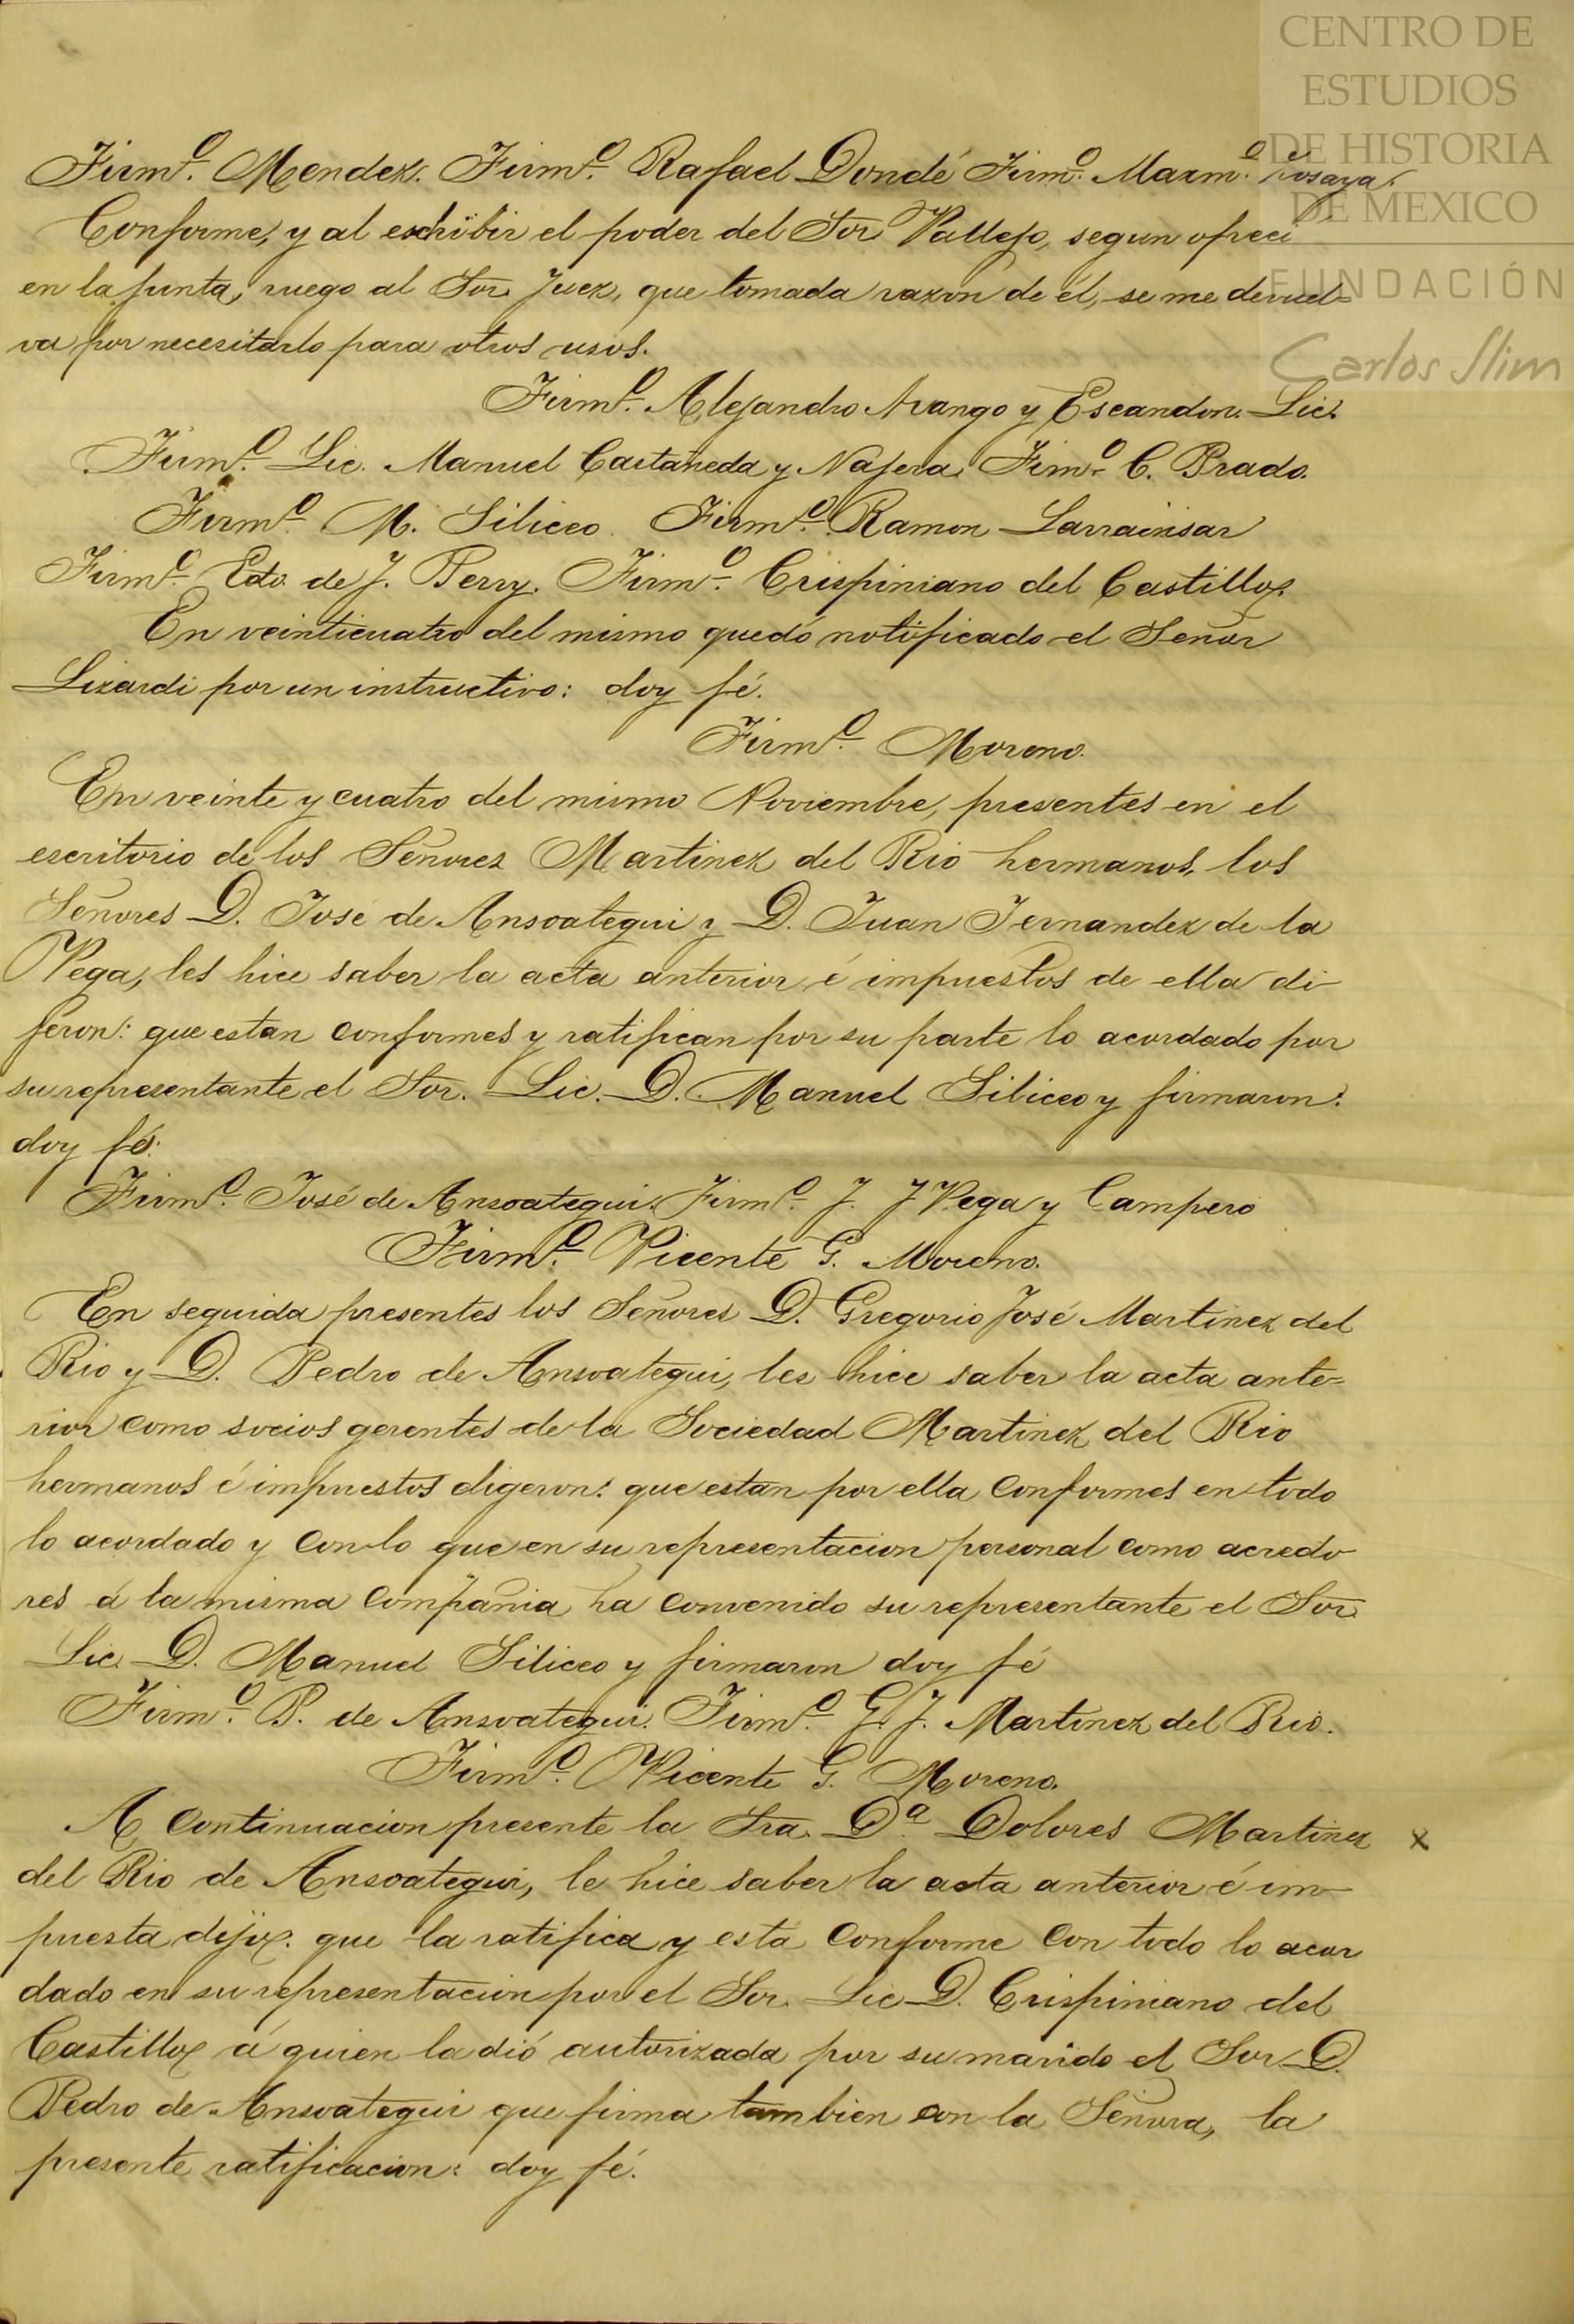 CENTRO DE
ESTUDIOS
DE HISTORIA
DE MEXICO
FUNDACIÓN
Carlos Slim
Firmº. Mendez. Firmº. Rafael Dondé Firmº. Maxmº.
Conforme, y al eschibir el poder del Sor Vallejo, segun ofreci
en la junta, ruego al Sor. Juez, que tomada razon de él, se me devuel=
va por necesitarlo para otros usos.
Firmº. Alejandro Arango y Escandon. Lic.
Firmº. Lic. Manuel Castañeda y Najera. Firmº. C. Prado.
Firmº. M. Siliceo. Firmº. Ramon Larrainsar
Firmº. Edo. de J. Perry. Firmº. Crispiniano del Castillo.
En veinticuatro del mismo quedó notificado el Señor
Lizardi por un instructivo: doy fé.
Firmº. Moreno.
En veinte y cuatro del mismo Noviembre, presentes en el
escritorio de los Señores Martinez del Rio hermanos, los
Señores D. José de Ansoategui y D. Juan Fernandez de la
Vega, les hice saber la acta anterior é impuestos de ella di-
jeron: que estan conformes y ratifican por su parte lo acordado por
su representante el Sor. Lic. D. Manuel Siliceo y firmaron:
doy fé.
Firmº. José de Ansoategui. Firmº. J. J Vega y Campero
Firmº. Vicente G. Moreno.
En seguida presentes los Señores D. Gregorio José Martinez del
Rio y D. Pedro de Ansoategui, les hice saber la acta ante=
rior como socios gerentes de la Sociedad Martinez del Rio
hermanos é impuestos digeron: que estan por ella conformes en todo
lo acordado y con lo que en su representacion personal como acredo
res á la misma compañia ha convenido su representante el Sor
Lic. D. Manuel Siliceo y firmaron doy fé
Firmº. P. de Ansoategui. Firmº. G. J. Martinez del Rio.
Firmº. Vicente G. Moreno.
A continuacion presente la Sra. Dª. Dolores Martinez x
del Rio de Ansoategui, le hice saber la acta anterior é im-
puesta dijo: que la ratifica y está conforme con todo lo acor
dado en su representacion por el Sor. Lic D. Crispiniano del
Castillo á quien la dió autorizada por su marido el Sor D.
Pedro de Ansoategui que firma tambien con la Señora, la
presente ratificacion: doy fé.